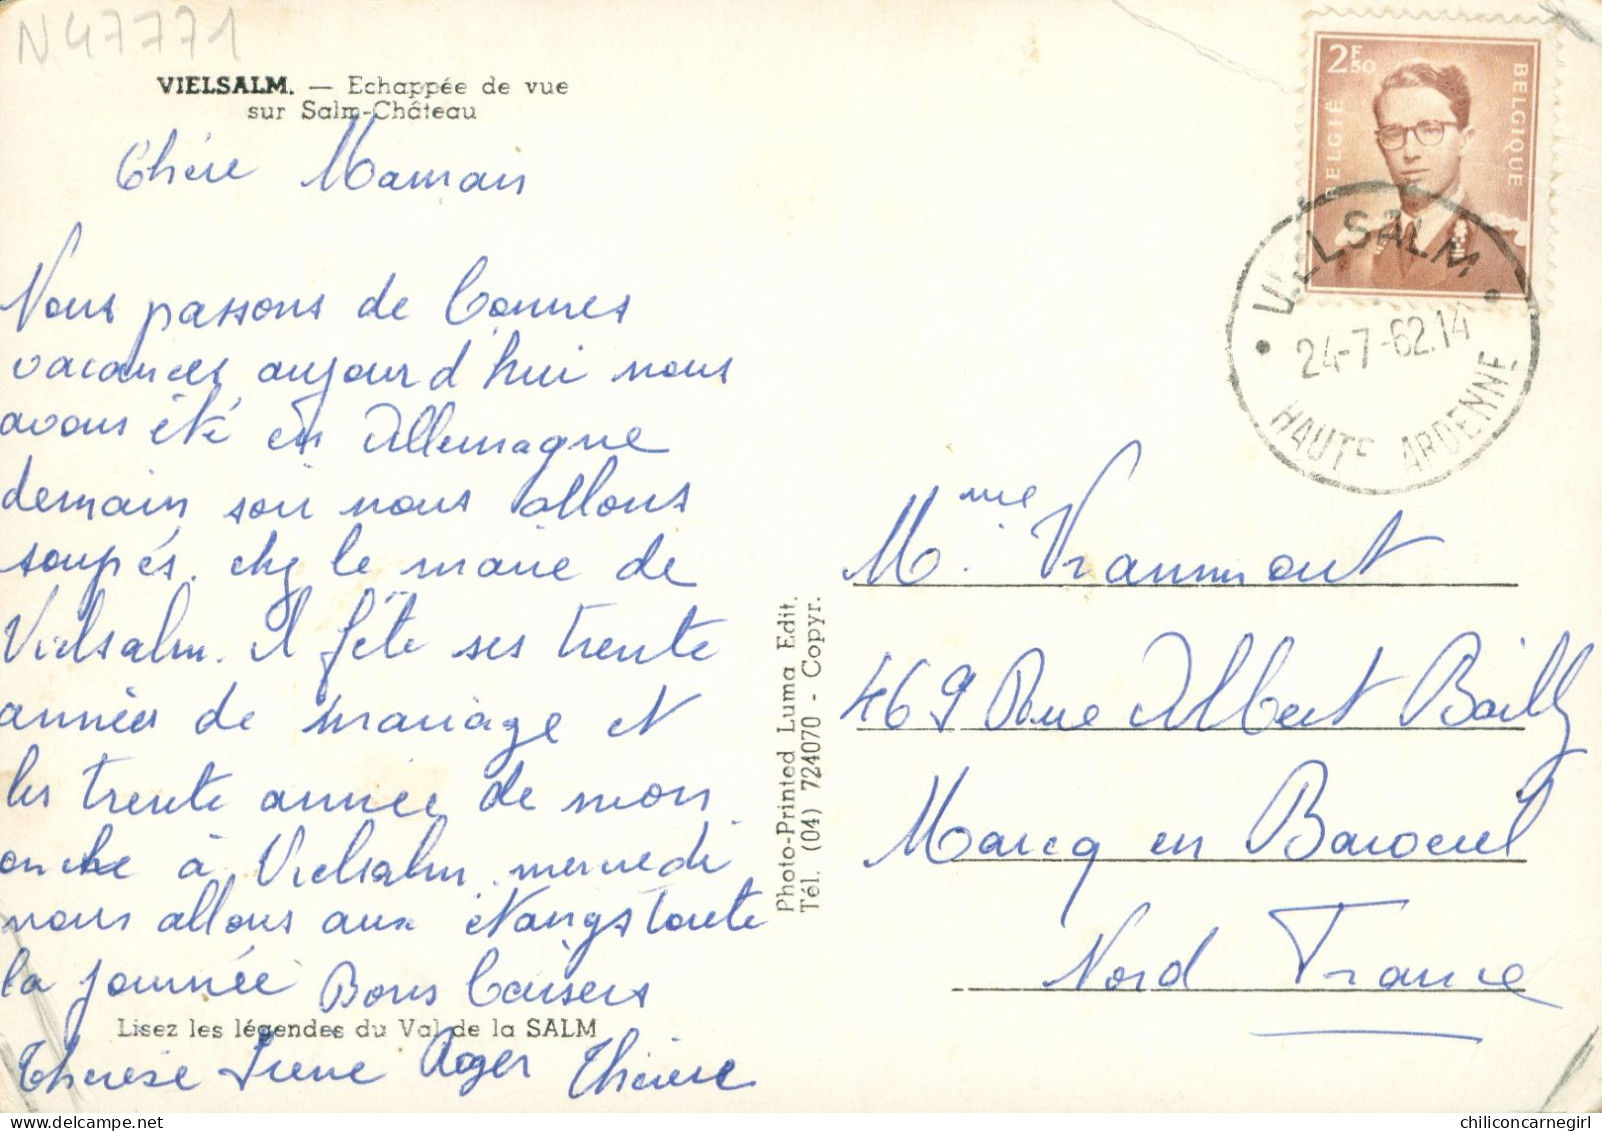 N47771
VIELSALM. — Echappée de vue
sur Salm-Château
Chère Maman
Nous passons de bonnes
vacances aujourd'hui nous
avons été en Allemagne
demain soir nous allons
soupés. chez le maire de
Vielsalm. il fête ses trente
années de mariage et
les trente année de mon
oncle à Vielsalm. mercredi
nous allons aux étangs toute
la journée Bons baisers
Lisez les légendes du Val de la SALM
Thérèse Irene Roger Thérèse
Photo-Printed Luma Edit.
Tél. (04) 724070 - Copyr.
2F50
BELGIË
BELGIQUE
VIELSALM
24-7-62.14
HAUTE ARDENNE
Mme. Vrammont
469 Rue Albert Bailly
Marcq en Baroeul
Nord France
chiliconcarnegirl